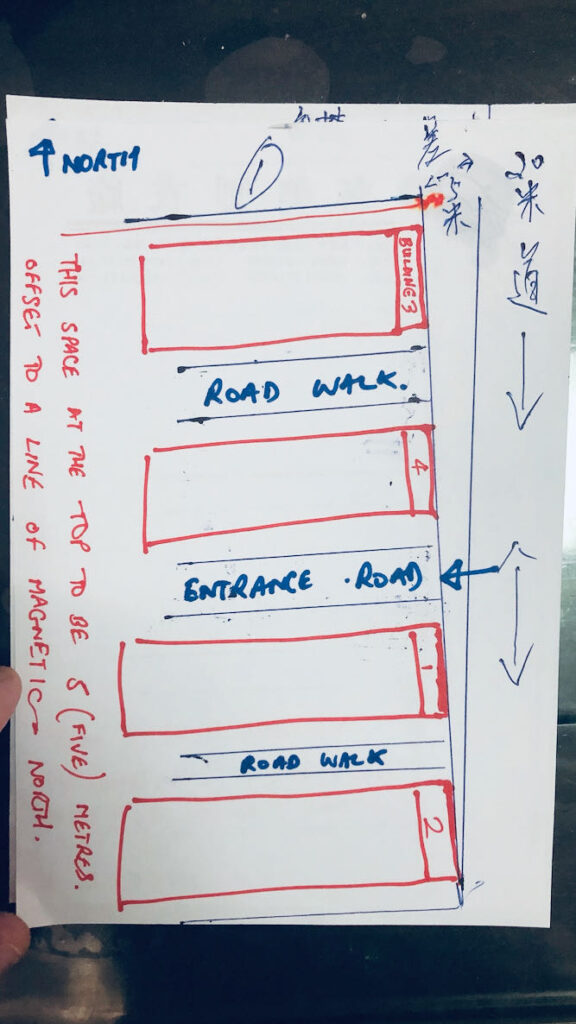 NORTH
①
差
5米
20米道
BUILDING 3
ROAD WALK.
4
ENTRANCE . ROAD
1
ROAD WALK
2
THIS SPACE AT THE TOP TO BE 5 (FIVE) METRES.
OFFSET TO A LINE OF MAGNETIC NORTH.